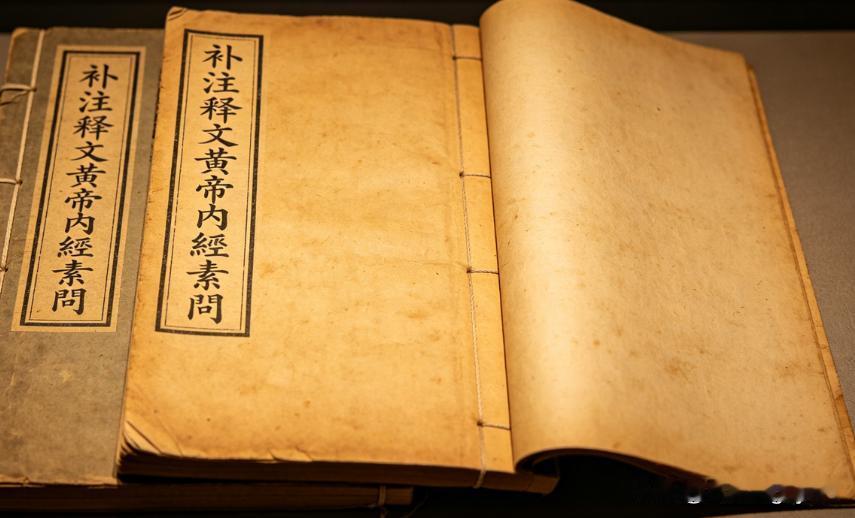 补注释文黄帝内經素問
补注释文黄帝内經素問